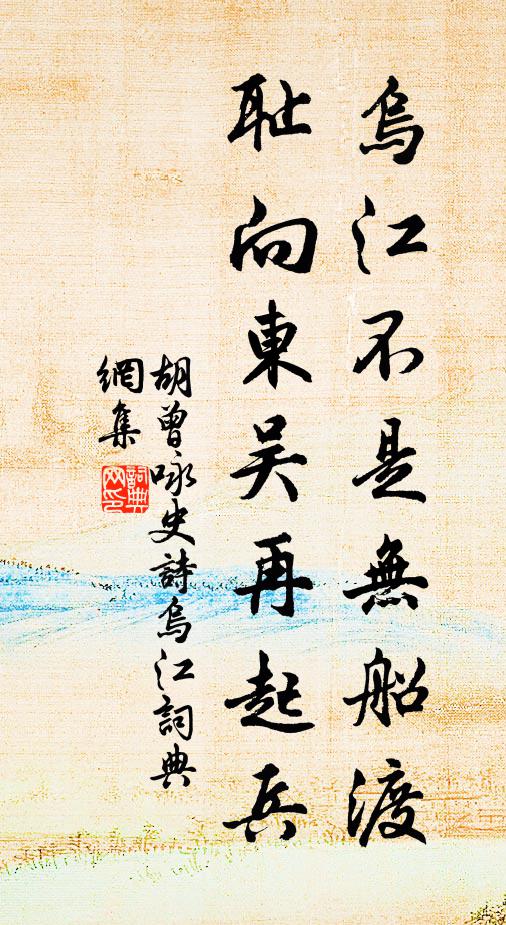 烏江不是無船渡
耻向東吴再起兵
胡曾咏史詩烏江詞典
網集
詞典
网印